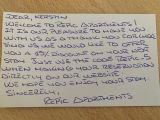 DEAR, KERSTIN
WELCOME TO REPIC APARTMENTS!
IT IS OUR PLEASURE TO HAVE YOU
WITH US. AS A THANK YOU FOR CHOO
SING US WE WOULD LIKE TO OFFER
YOU A DISCOUNT ON YOUR NEXT
STAY. JUST USE THE CODE REPIC
WHEN MAKING YOUR RESERVATION
DIRECTLY ON OUR WEBSITE.
WE HOPE YOU ENJOY YOUR STAY.
SINCERELY,
REPIC APARTMENTS